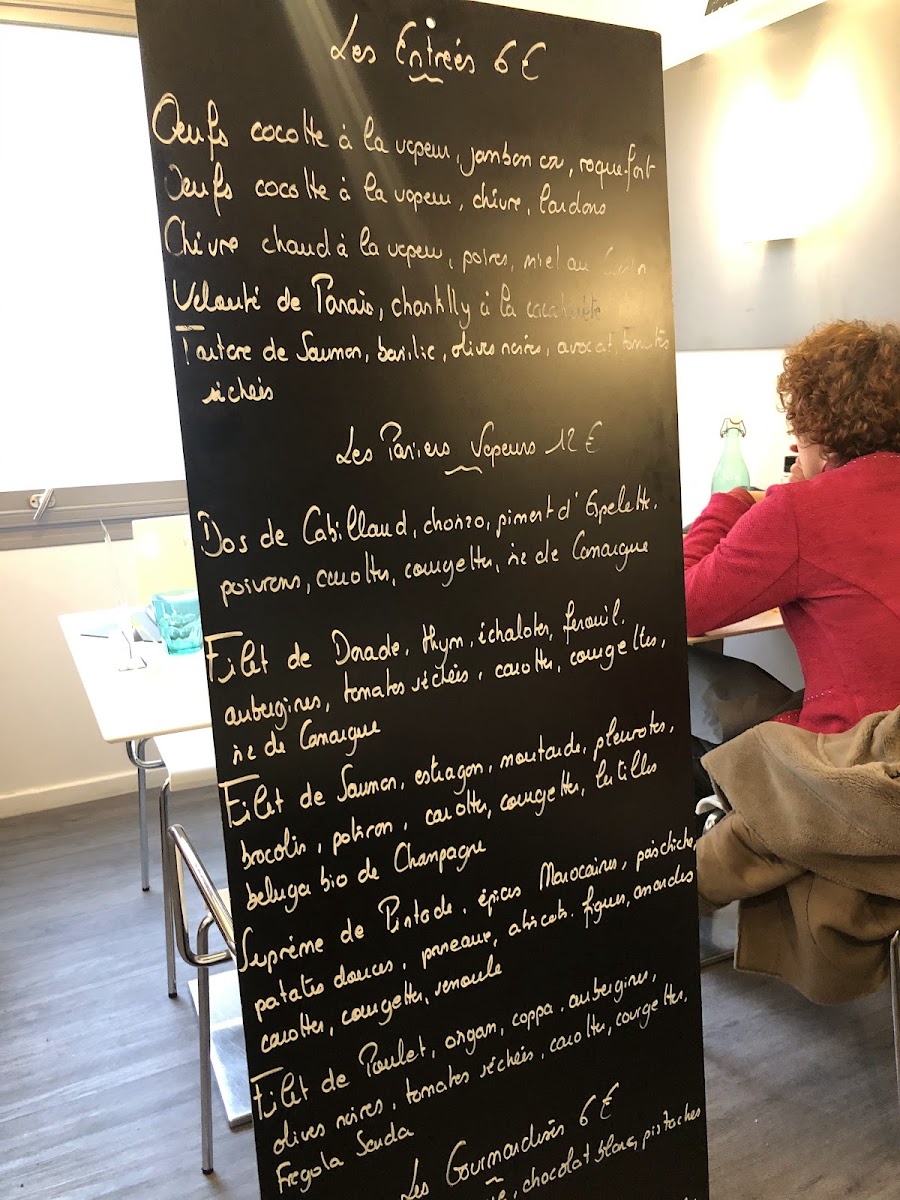 Les Entrées 6€
Oeufs cocotte à la vapeur, jambon cru, roquefort
Oeufs cocotte à la vapeur, chèvre, lardons
Chèvre chaud à la vapeur, poires, miel au
Velouté de Panais, chantilly à la cacahuète
Tartare de Saumon, basilic, olives noires, avocat, tomates
séchées
Les Paniers Vapeurs 12€
Dos de Cabillaud, chorizo, piment d'Espelette,
poivrons, carottes, courgettes, riz de Camargue
Filet de Dorade, thym, échalotes, fenouil,
aubergines, tomates séchées, carottes, courgettes,
riz de Camargue
Filet de Saumon, estragon, moutarde, pleurotes,
brocolis, potiron, carottes, courgettes, lentilles
beluga bio de Champagne
Suprême de Pintade, épices Marocaines, pois chiche,
patates douces, pruneaux, abricots, figues, amandes
carottes, courgettes, semoule
Filet de Poulet, origan, coppa, aubergines,
olives noires, tomates séchées, carottes, courgettes,
Fregola Sarda
Les Gourmandises 6€
, chocolat blanc, pistaches